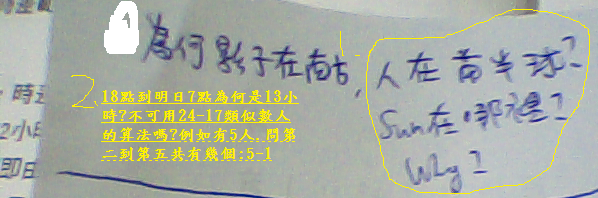 為何影子在南方,
人在南半球?
Sun在哪裡?
Why?
2. 18點到明日7點為何是13小
時?不可用24-17類似數人
的算法嗎?例如有5人,問第
二到第五共有幾個:5-1
時
2小
即日